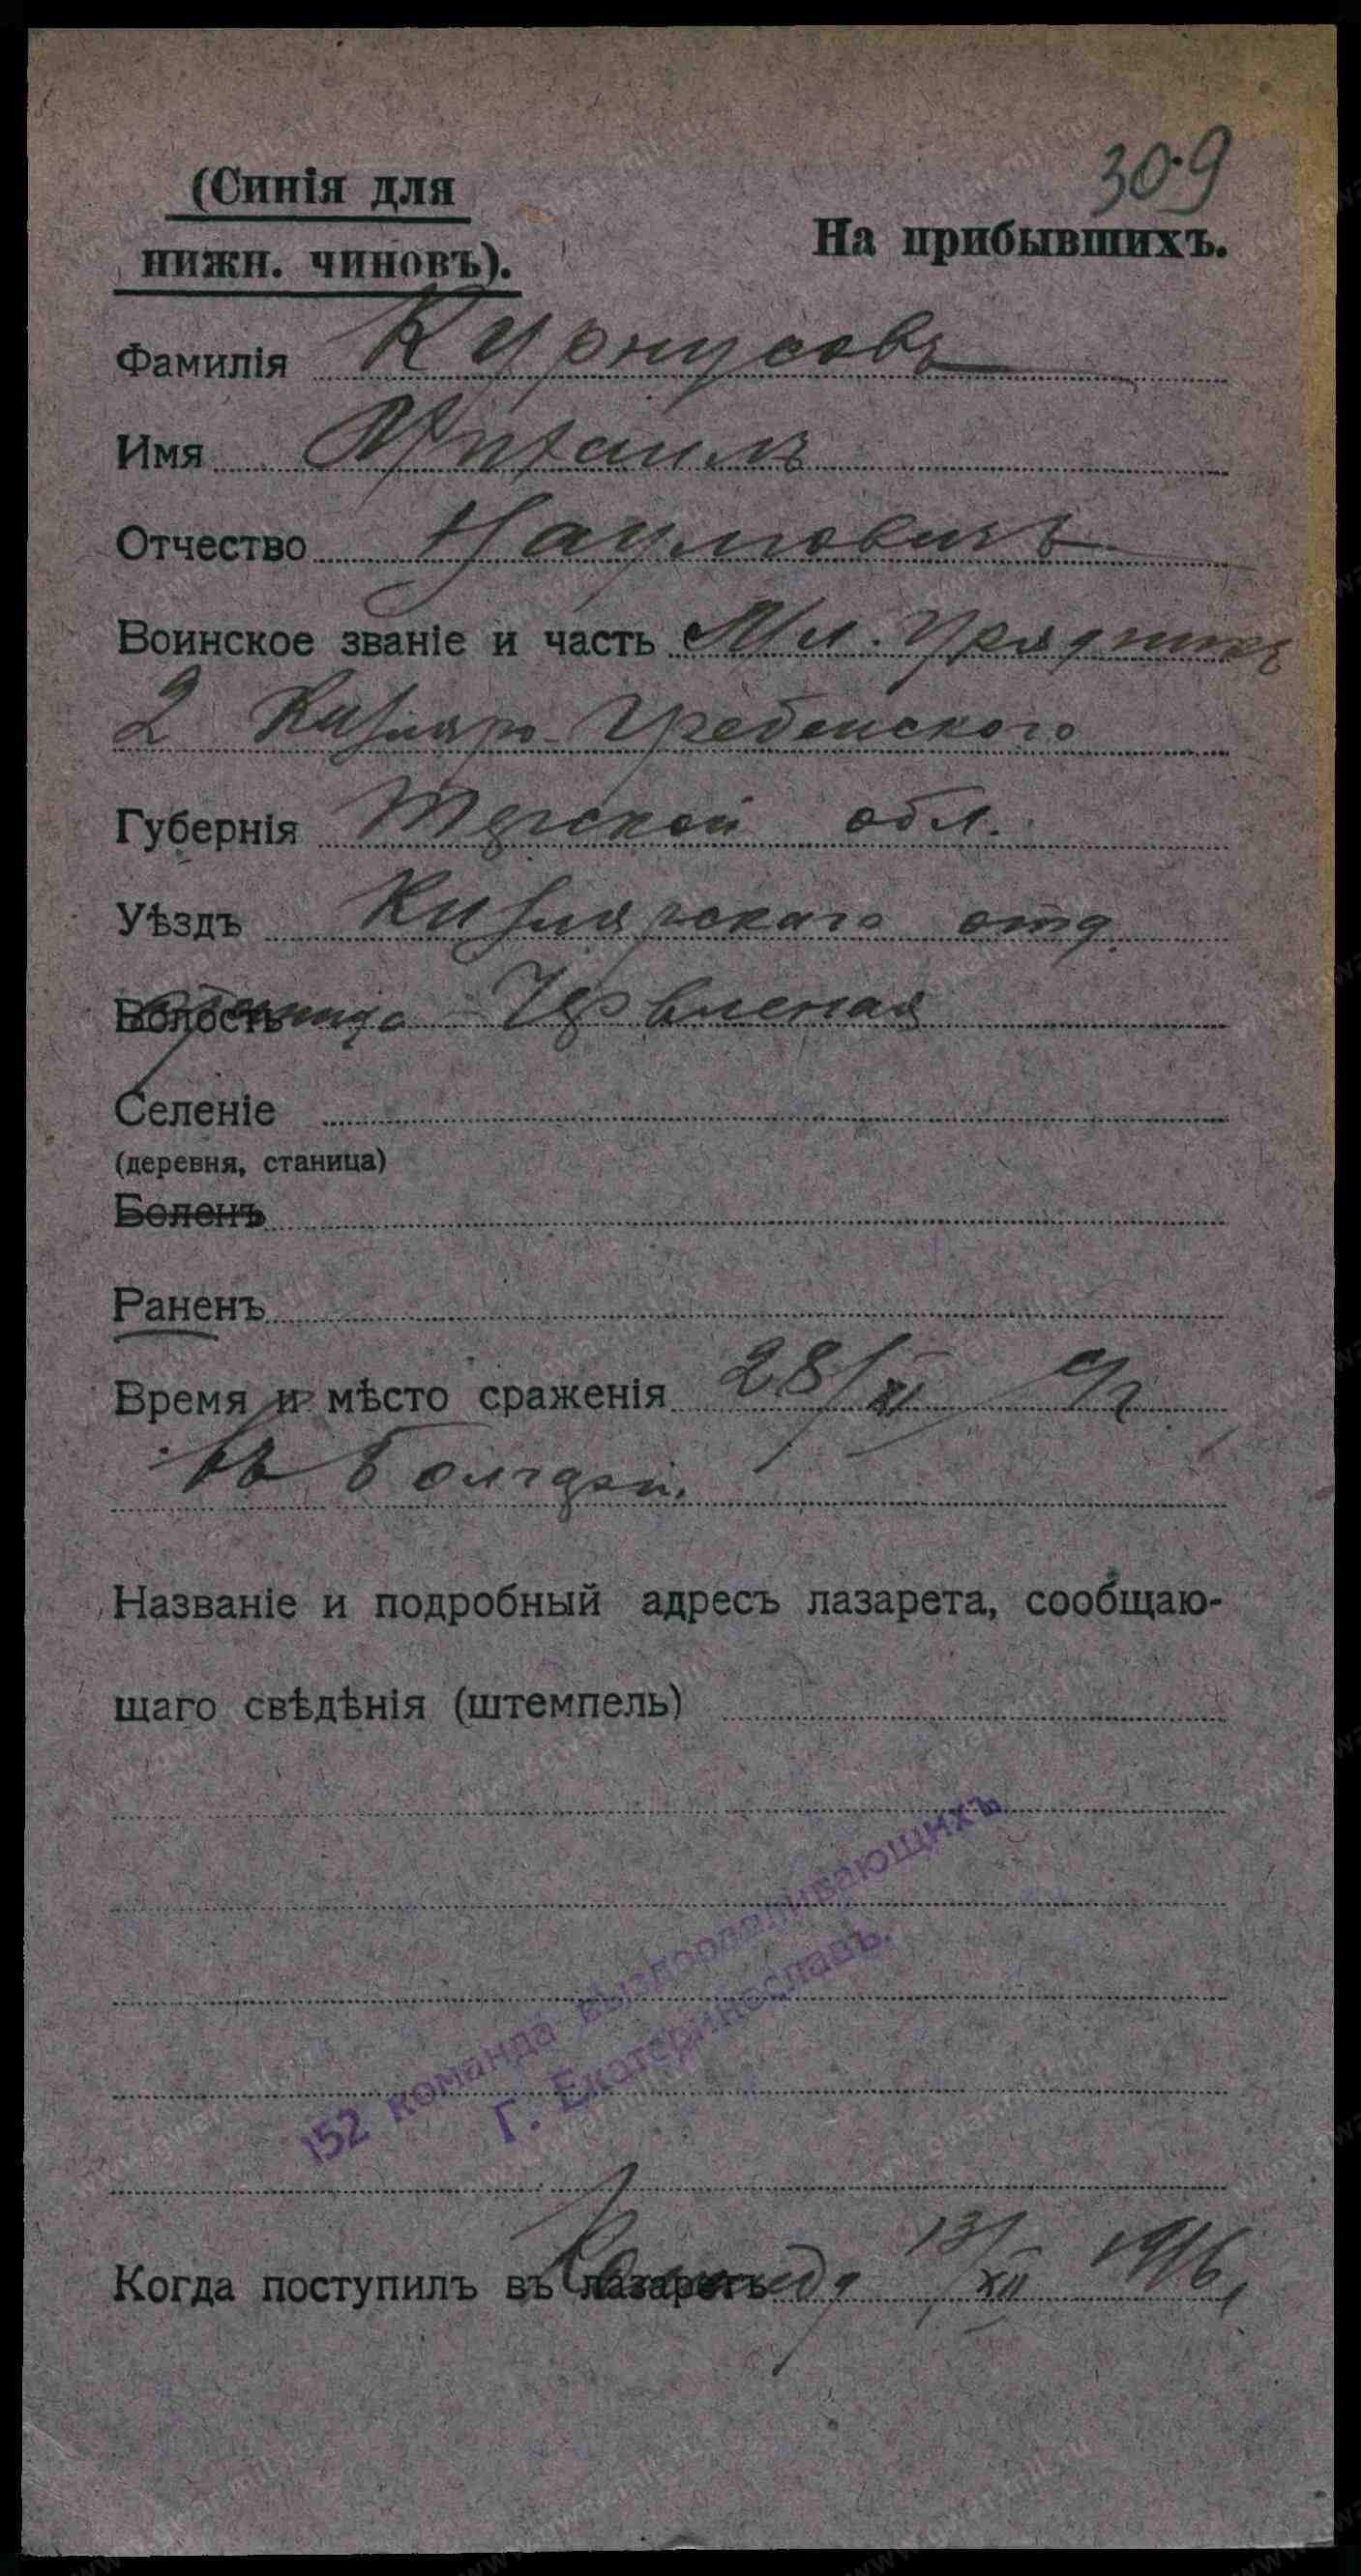 309
(Синія для
нижн. чиновъ).
На прибывшихъ.
Фамилія Курнусовъ
Имя Михаилъ
Отчество Наумовичъ
Воинское званіе и часть Мл. Урядникъ
2 Кизляро-Гребенского
Губернія Терской обл.
Уѣздъ Кизлярскаго отд.
Волость станица Червленая
Селеніе
(деревня, станица)
Боленъ
Раненъ
Время и мѣсто сраженія 28/XI с/г
въ
Названіе и подробный адресъ лазарета, сообщаю-
щаго свѣдѣнія (штемпель)
152 команда выздоравливающихъ
Г. Екатеринославъ.
Когда поступилъ въ лазаретъ команду 13/XII 1916